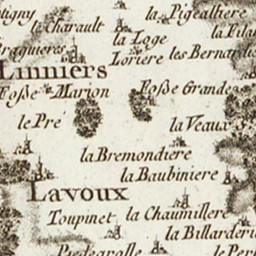 la Pigealliere
le Charault
la Loge
Loriere
les Bernardi
Linniers
Foſse Marion
Foſse Grande
le Pré
la Veaux
la Bremondiere
la Baubiniere
Lavoux
Toupinet
la Chaumillere
la Billarderi
Piedegrolle
le Per